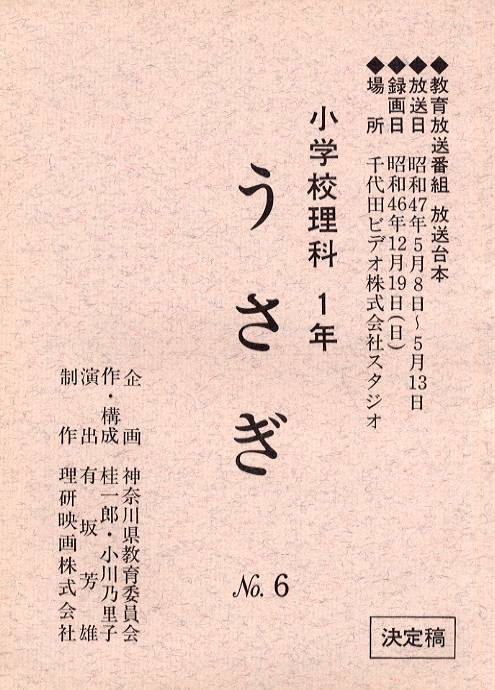 ◆教育放送番組 放送台本
◆放送日 昭和47年5月8日〜5月13日
◆録画日 昭和46年12月19日(日)
◆場所 千代田ビデオ株式会社スタジオ
小学校理科 1年
うさぎ
No. 6
企画 神奈川県教育委員会
作・構成 桂一郎・小川乃里子
演出 有坂芳雄
制作 理研映画株式会社
決定稿